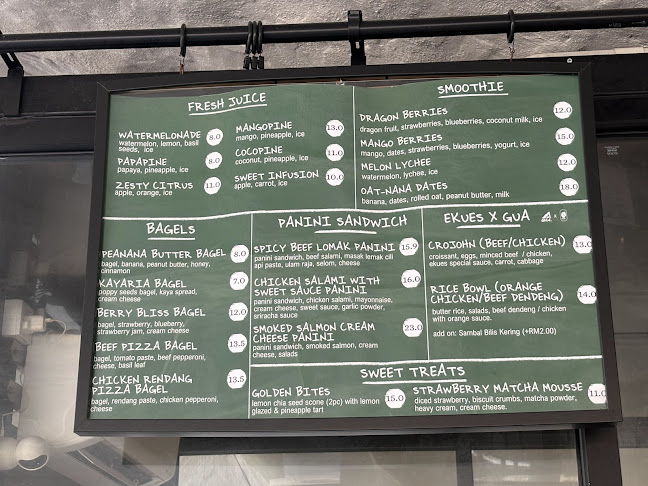 FRESH JUICE
WATERMELONADE 8.0
watermelon, lemon, basil
seeds, ice
PAPAPINE 8.0
papaya, pineapple, ice
ZESTY CITRUS 11.0
apple, orange, ice
MANGOPINE 13.0
mango, pineapple, ice
COCOPINE 11.0
coconut, pineapple, ice
SWEET INFUSION 10.0
apple, carrot, ice
SMOOTHIE
DRAGON BERRIES 12.0
dragon fruit, strawberries, blueberries, coconut milk, ice
MANGO BERRIES 15.0
mango, dates, strawberries, blueberries, yogurt, ice
MELON LYCHEE 12.0
watermelon, lychee, ice
OAT-NANA DATES 18.0
banana, dates, rolled oat, peanut butter, milk
BAGELS
PEANANA BUTTER BAGEL 8.0
bagel, banana, peanut butter, honey,
cinnamon
KAYARIA BAGEL 7.0
poppy seeds bagel, kaya spread,
cream cheese
BERRY BLISS BAGEL 12.0
bagel, strawberry, blueberry,
strawberry jam, cream cheese
BEEF PIZZA BAGEL 13.5
bagel, tomato paste, beef pepperoni,
cheese, basil leaf
CHICKEN RENDANG 13.5
PIZZA BAGEL
bagel, rendang paste, chicken pepperoni,
cheese
PANINI SANDWICH
SPICY BEEF LOMAK PANINI 15.9
panini sandwich, beef salami, masak lemak cili
api paste, ulam raja, selom, cheese
CHICKEN SALAMI WITH 16.0
SWEET SAUCE PANINI
panini sandwich, chicken salami, mayonnaise,
cream cheese, sweet sauce, garlic powder,
sriracha sauce
SMOKED SALMON CREAM 23.0
CHEESE PANINI
panini sandwich, smoked salmon, cream
cheese, salads
EKUES X GUA
CROJOHN (BEEF/CHICKEN) 13.0
croissant, eggs, minced beef / chicken,
ekues special sauce, carrot, cabbage
RICE BOWL (ORANGE 14.0
CHICKEN/BEEF DENDENG)
butter rice, salads, beef dendeng / chicken
with orange sauce.
add on: Sambal Bilis Kering (+RM2.00)
SWEET TREATS
GOLDEN BITES 15.0
lemon chia seed scone (2pc) with lemon
glazed & pineapple tart
STRAWBERRY MATCHA MOUSSE 11.0
diced strawberry, biscuit crumbs, matcha powder,
heavy cream, cream cheese.